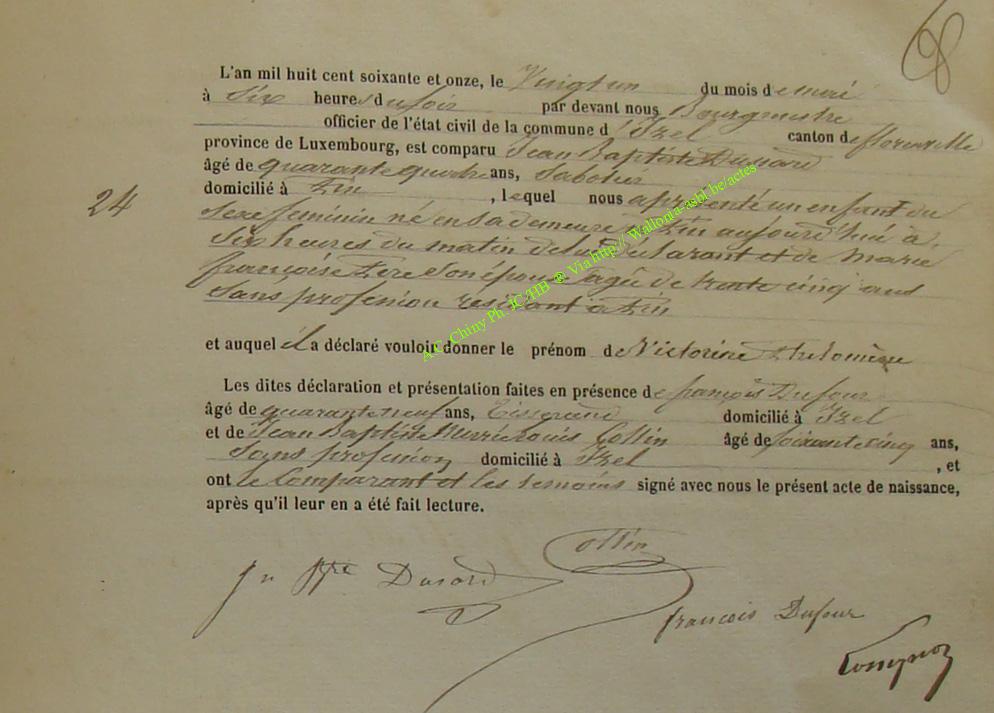 L'an mil huit cent soixante et onze, le Vingt un du mois de mai
à Six heures du soir par devant nous Bourgmestre
officier de l'état civil de la commune d'Izel canton de florenville
province de Luxembourg, est comparu Jean Baptiste Dusard
âgé de quarante quatre ans, Sabotier
24
domicilié à , lequel nous a présenté un enfant du
Sexe feminin né en sa demeure à aujourd'hui à
Six heures du matin de lui déclarant et de marie
françoise son épouse agée de trente cinq ans
Sans profession residant à
et auquel il a déclaré vouloir donner le prénom de Victorine
Les dites déclaration et présentation faites en présence de françois Dufour
âgé de quarante neuf ans, Tisserand domicilié à Izel
et de Jean Baptiste Collin âgé de soixante cinq ans,
Sans profession domicilié à Izel , et
ont le Comparant et les temoins signé avec nous le présent acte de naissance,
après qu'il leur en a été fait lecture.
Collin
Jn Bte Dusard
françois Dufour
A.C. Chiny Ph. JC/HB ® Via http:// Wallonia-asbl.be/actes